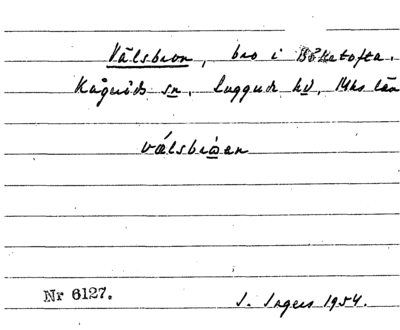 Välsbron, bro i Böketofta.
Kågeröds sn, Luggude hd, Mhs län
vælsbroen
Nr 6127.
J. Ingers 1954.